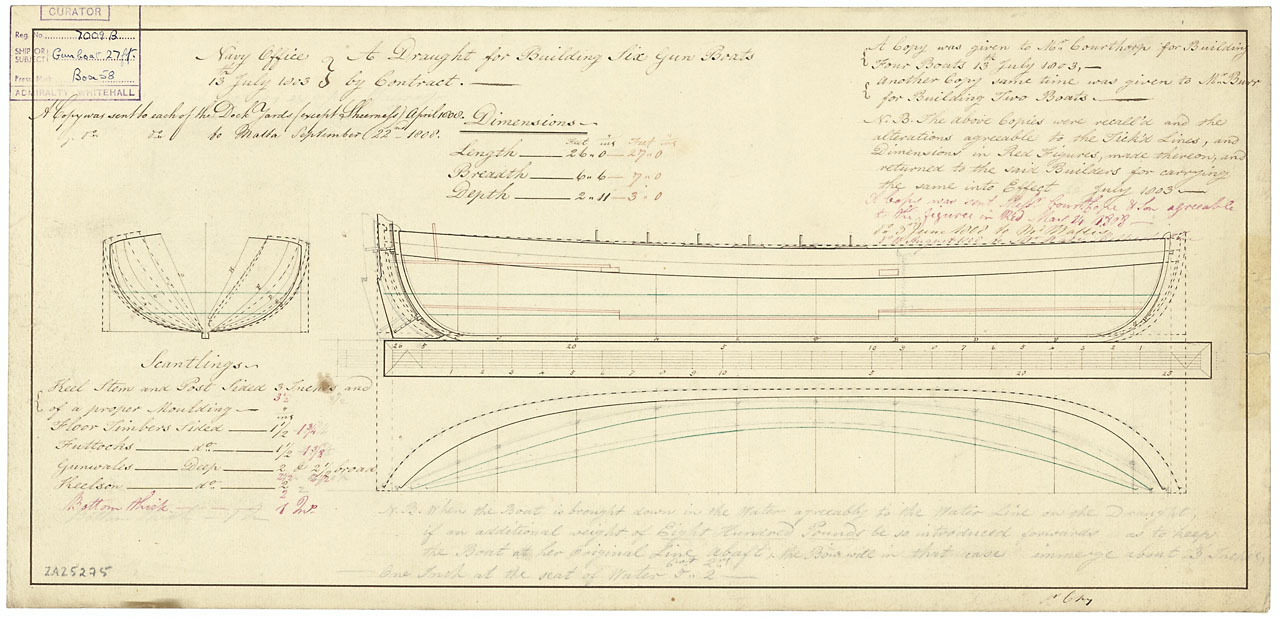 CURATOR
Reg. No. 7009.B
SHIP OR SUBJECT Gunboat 27 ft.
Box 58
ADMIRALTY - WHITEHALL
Navy Office
13th July 1803
A Draught for Building Six Gun Boats
by Contract.
A Copy was sent to each of the Dock Yards (except Sheerness) April 1808.
do do to Malta September (22nd 1808.
Dimensions
Feet ins Feet ins
Length 26 " 0 27 " 0
Breadth 6 " 6 7 " 0
Depth 2 " 11 3 " 0
A Copy was given to Mr. Courthorp for Building
Four Boats 13th July 1803,
another Copy same time was given to Mr. Burr
for Building Two Boats.
N.B. The above Copies were recall'd and the
alterations agreeable to the Tick'd Lines, and
Dimensions in Red Figures, made thereon, and
returned to the said Builders for carrying
the same into Effect July 1803.
A Copy was sent Messrs Courthope & Son agreeable
to the figures in Red May 1808
June 1808 to Mr
August 1808 to Mr
Scantlings
Keel Stem and Post Sided 3 Inches and
3 1/2
of a proper Moulding
ins
Floor Timbers Sided 1 1/2 1 3/4
Futtocks do. 1 1/2
Gunwales Deep 2 & 2 1/2 broad
Keelson do. 2
Bottom thick
N.B. When the Boat is brought down in the Water agreeably to the Water Line on the Draught,
if an additional weight of Eight Hundred Pounds be so introduced forwards as to keep
the Boat at her Original Line Abaft, the Bow will in that case immerge about 3 Inches,
One Inch at the seat of Water
ZAZ5275